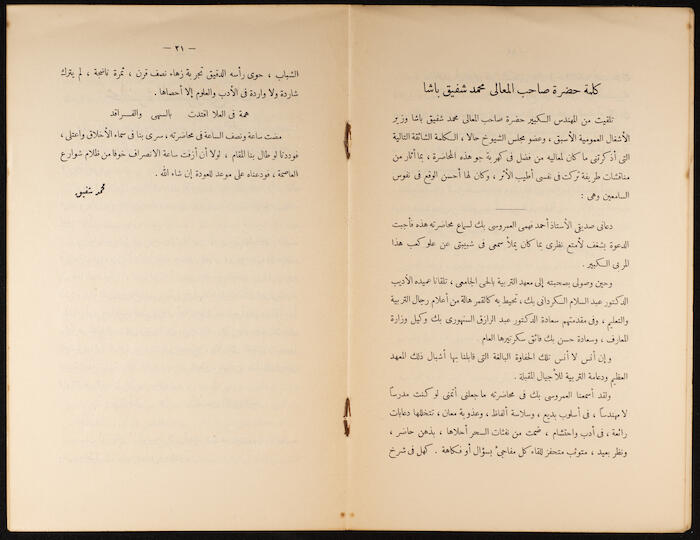 كلمة حضرة صاحب المعالى محمد شفيق باشا
تلقيت من المهندس الكبير حضرة صاحب المعالى محمد شفيق باشا وزير
الأشغال العمومية الأسبق ، وعضو مجلس الشيوخ حالا ، الكلمة الشائقة التالية
التى أذكرتنى ما كان لمعاليه من فضل فى كهربة جو هذه المحاضرة ، بما أثار من
مناقشات طريفة تركت فى نفسى أطيب الأثر ، وكان لها أحسن الوقع فى نفوس
السامعين وهى :
دعانى صديقى الأستاذ أحمد فهمى العمروسى بك لسماع محاضرته هذه فأجبت
الدعوة بشغف لأمتع نظرى بما كان يملأ سمعى فى شبيبتى عن علو كعب هذا
المربى الكبير .
وحين وصولى بصحبته إلى معهد التربية بالحى الجامعى ، تلقانا عميده الأديب
الدكتور عبد السلام الكردانى بك ، تحيط به كالقمر هالة من أعلام رجال التربية
والتعليم ، وفى مقدمتهم سعادة الدكتور عبد الرازق السنهورى بك وكيل وزارة
المعارف ، وسعادة حسن بك فائق سكرتيرها العام .
وإن أنس لا أنس تلك الحفاوة البالغة التى قابلنا بها أشبال ذلك المعهد
العظيم ودعامة التربية للأجيال المقبلة .
ولقد أسمعنا العمروسى بك فى محاضرته ما جعلنى أتمنى لو كنت مدرساً
لا مهندساً ، فى أسلوب بديع ، وسلاسة ألفاظ ، وعذوبة معان ، تتخللها دعابات
رائعة ، فى أدب واحتشام ، ضمت من نفثات السحر أحلاها ، بذهن حاضر ،
ونظر بعيد ، متوثب متحفز للقاء كل مفاجىء بسؤال أو فكاهة . كهل فى شرخ
— ٢١ —
الشباب ، حوى رأسه الدقيق تجربة زهاء نصف قرن ، ثمرة ناضجة ، لم يترك
شاردة ولا واردة فى الأدب والعلوم إلا أحصاها .
همة فى العلا افتدت بالسهى والفراقد
مضت ساعة ونصف الساعة فى محاضرته ، سرى بنا فى سماء الأخلاق واعتلى ،
فوددنا لو طال بنا المقام ، لولا أن أزفت ساعة الانصراف خوفا من ظلام شوارع
العاصمة ، فودعناه على موعد للعودة إن شاء الله .
محمد شفيق